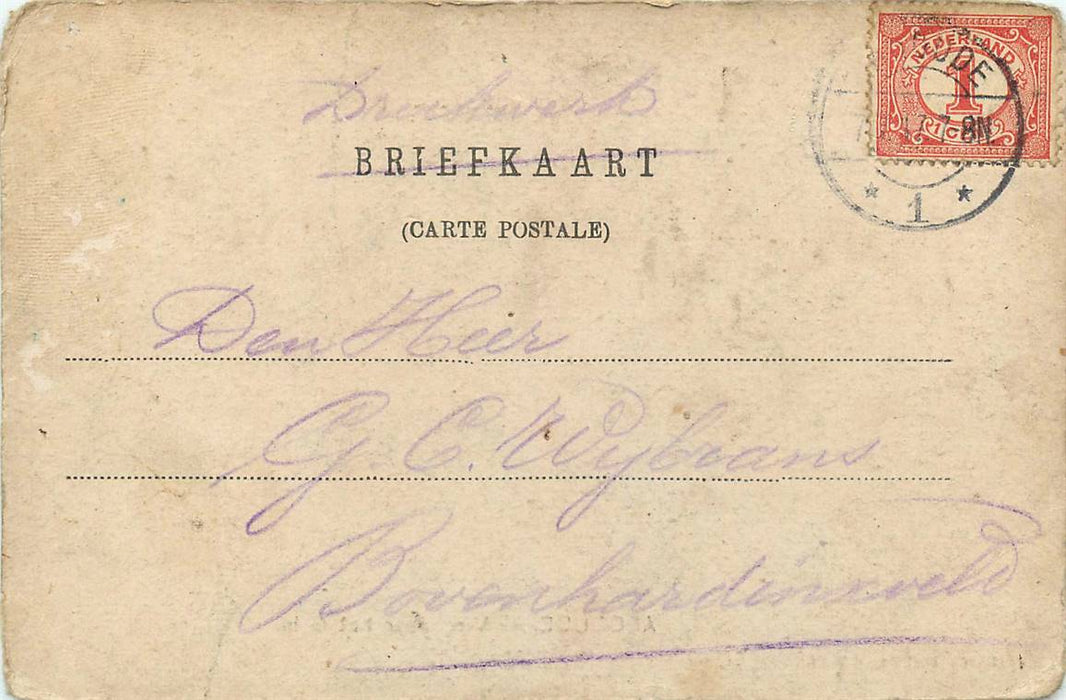 Drukwerk
BRIEFKAART
(CARTE POSTALE)
NEDERLAND
1
1 C
7-8N
1
Den Heer
G. C. Wijbrans
Bovenhardinxveld